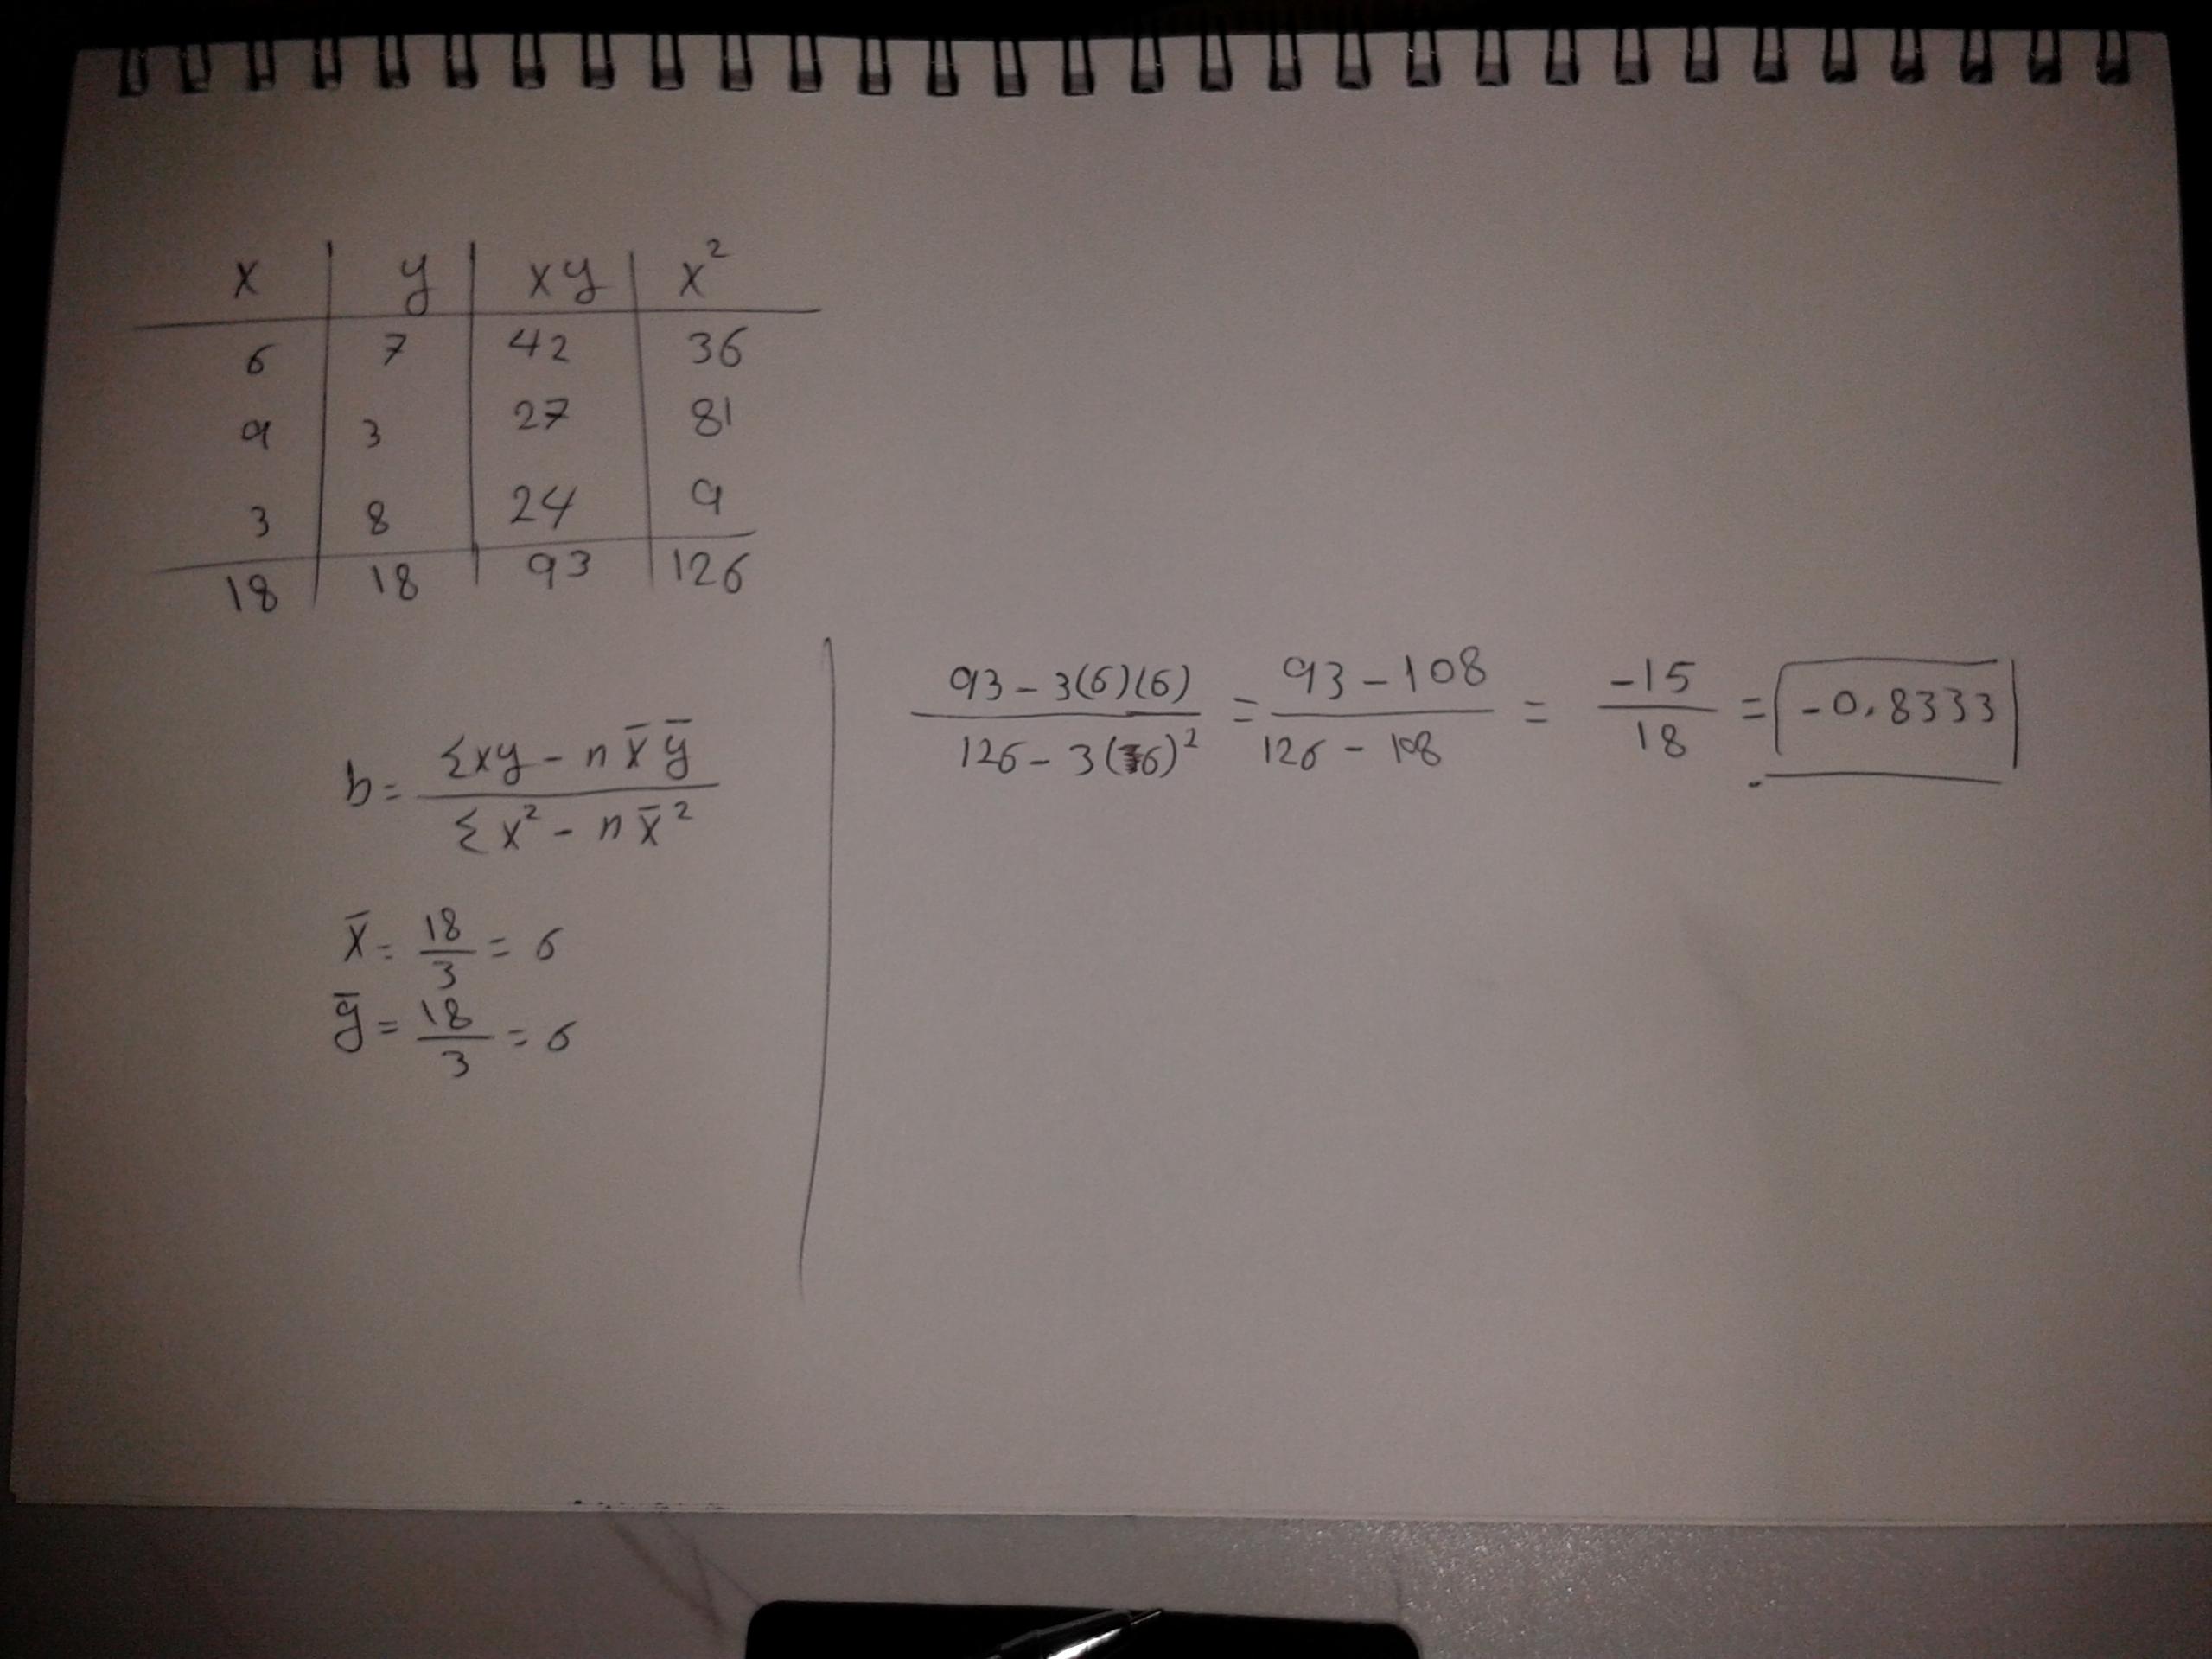 x y xy x²
6 7 42 36
9 3 27 81
3 8 24 9
18 18 93 126
b = (Σxy - n x̄ ȳ) / (Σx² - n x̄²)
x̄ = 18/3 = 6
ȳ = 18/3 = 6
(93 - 3(6)(6)) / (126 - 3(6)²) = (93 - 108) / (126 - 108) = -15/18 = -0.8333